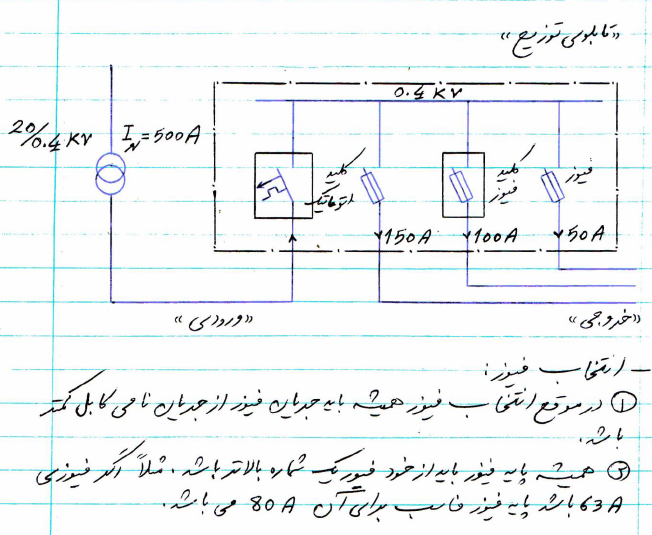 «تابلوی توزیع»
0.4 KV
20/0.4 KV
I_N=500A
کلید
اتوماتیک
کلید
فیوز
فیوز
150A
100A
50A
«ورودی»
«خروجی»
- انتخاب فیوز:
① در موقع انتخاب فیوز همیشه باید جریان فیوز از جریان نامی کابل کمتر
باشد.
② همیشه پایه فیوز باید از خود فیوز یک شماره بالاتر باشد. مثلاً اگر فیوزی
63A باشد پایه فیوز مناسب برای آن 80A می باشد.